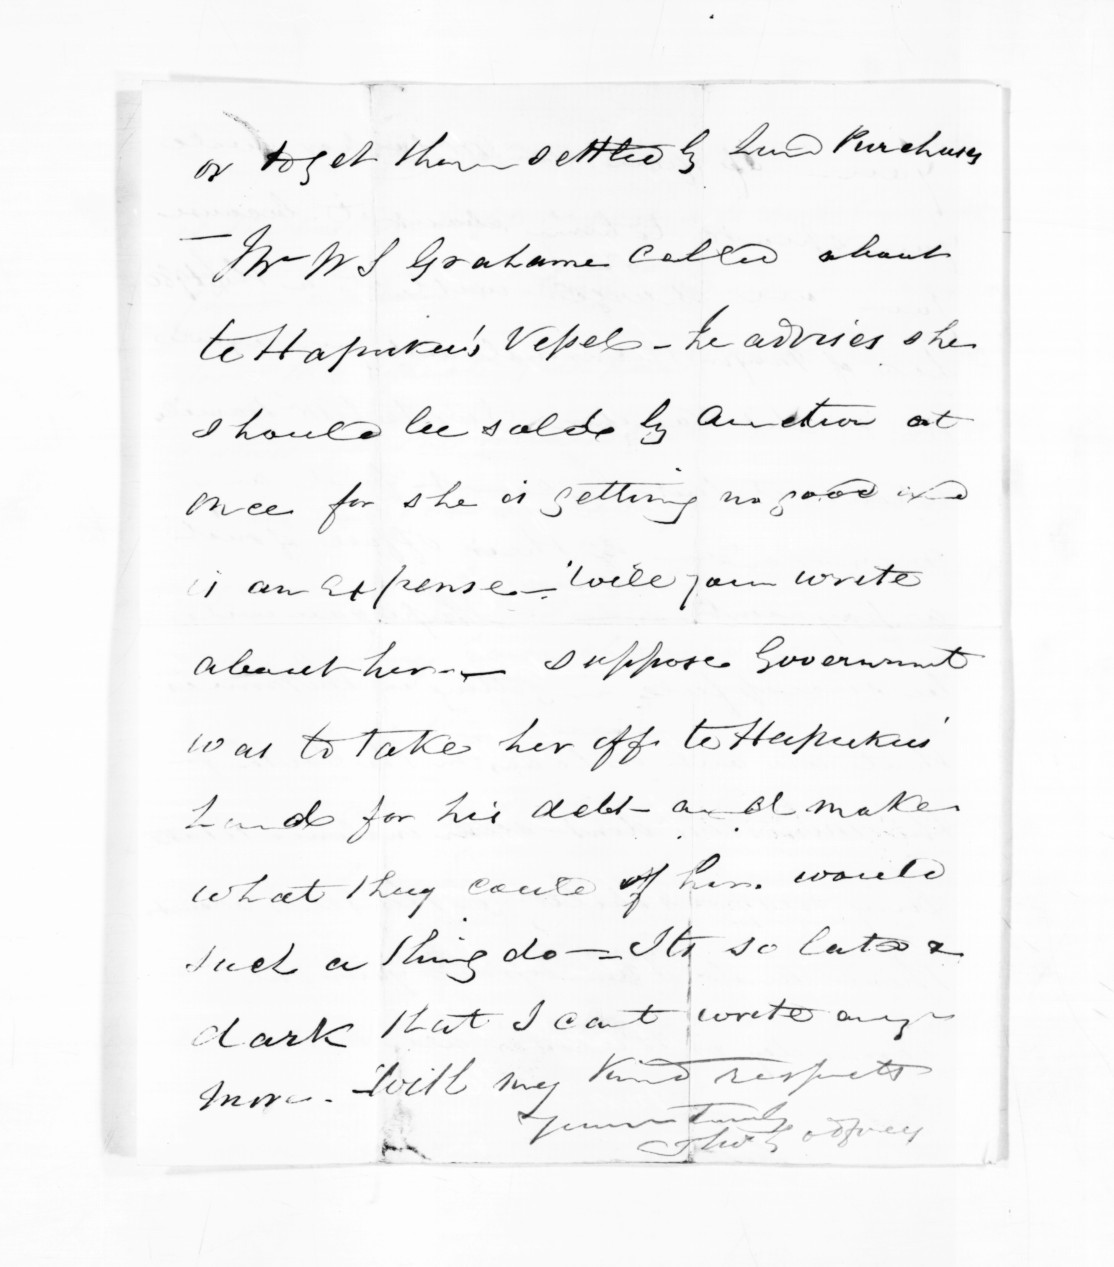 or to get them settled by Land Purchases
— Mr W S Grahame called about
te Hapuku's Vessel — he advises she
should be sold by Auction at
once for she is getting no good and
is an expense — Will you write
about her — suppose Government
was to take her off te Hapuku's
hands for his debt — and make
what they could of her. would
such a thing do — Its so late &
dark that I cant write any
more. — With my kind respects
Yours truly
Thos Godfrey